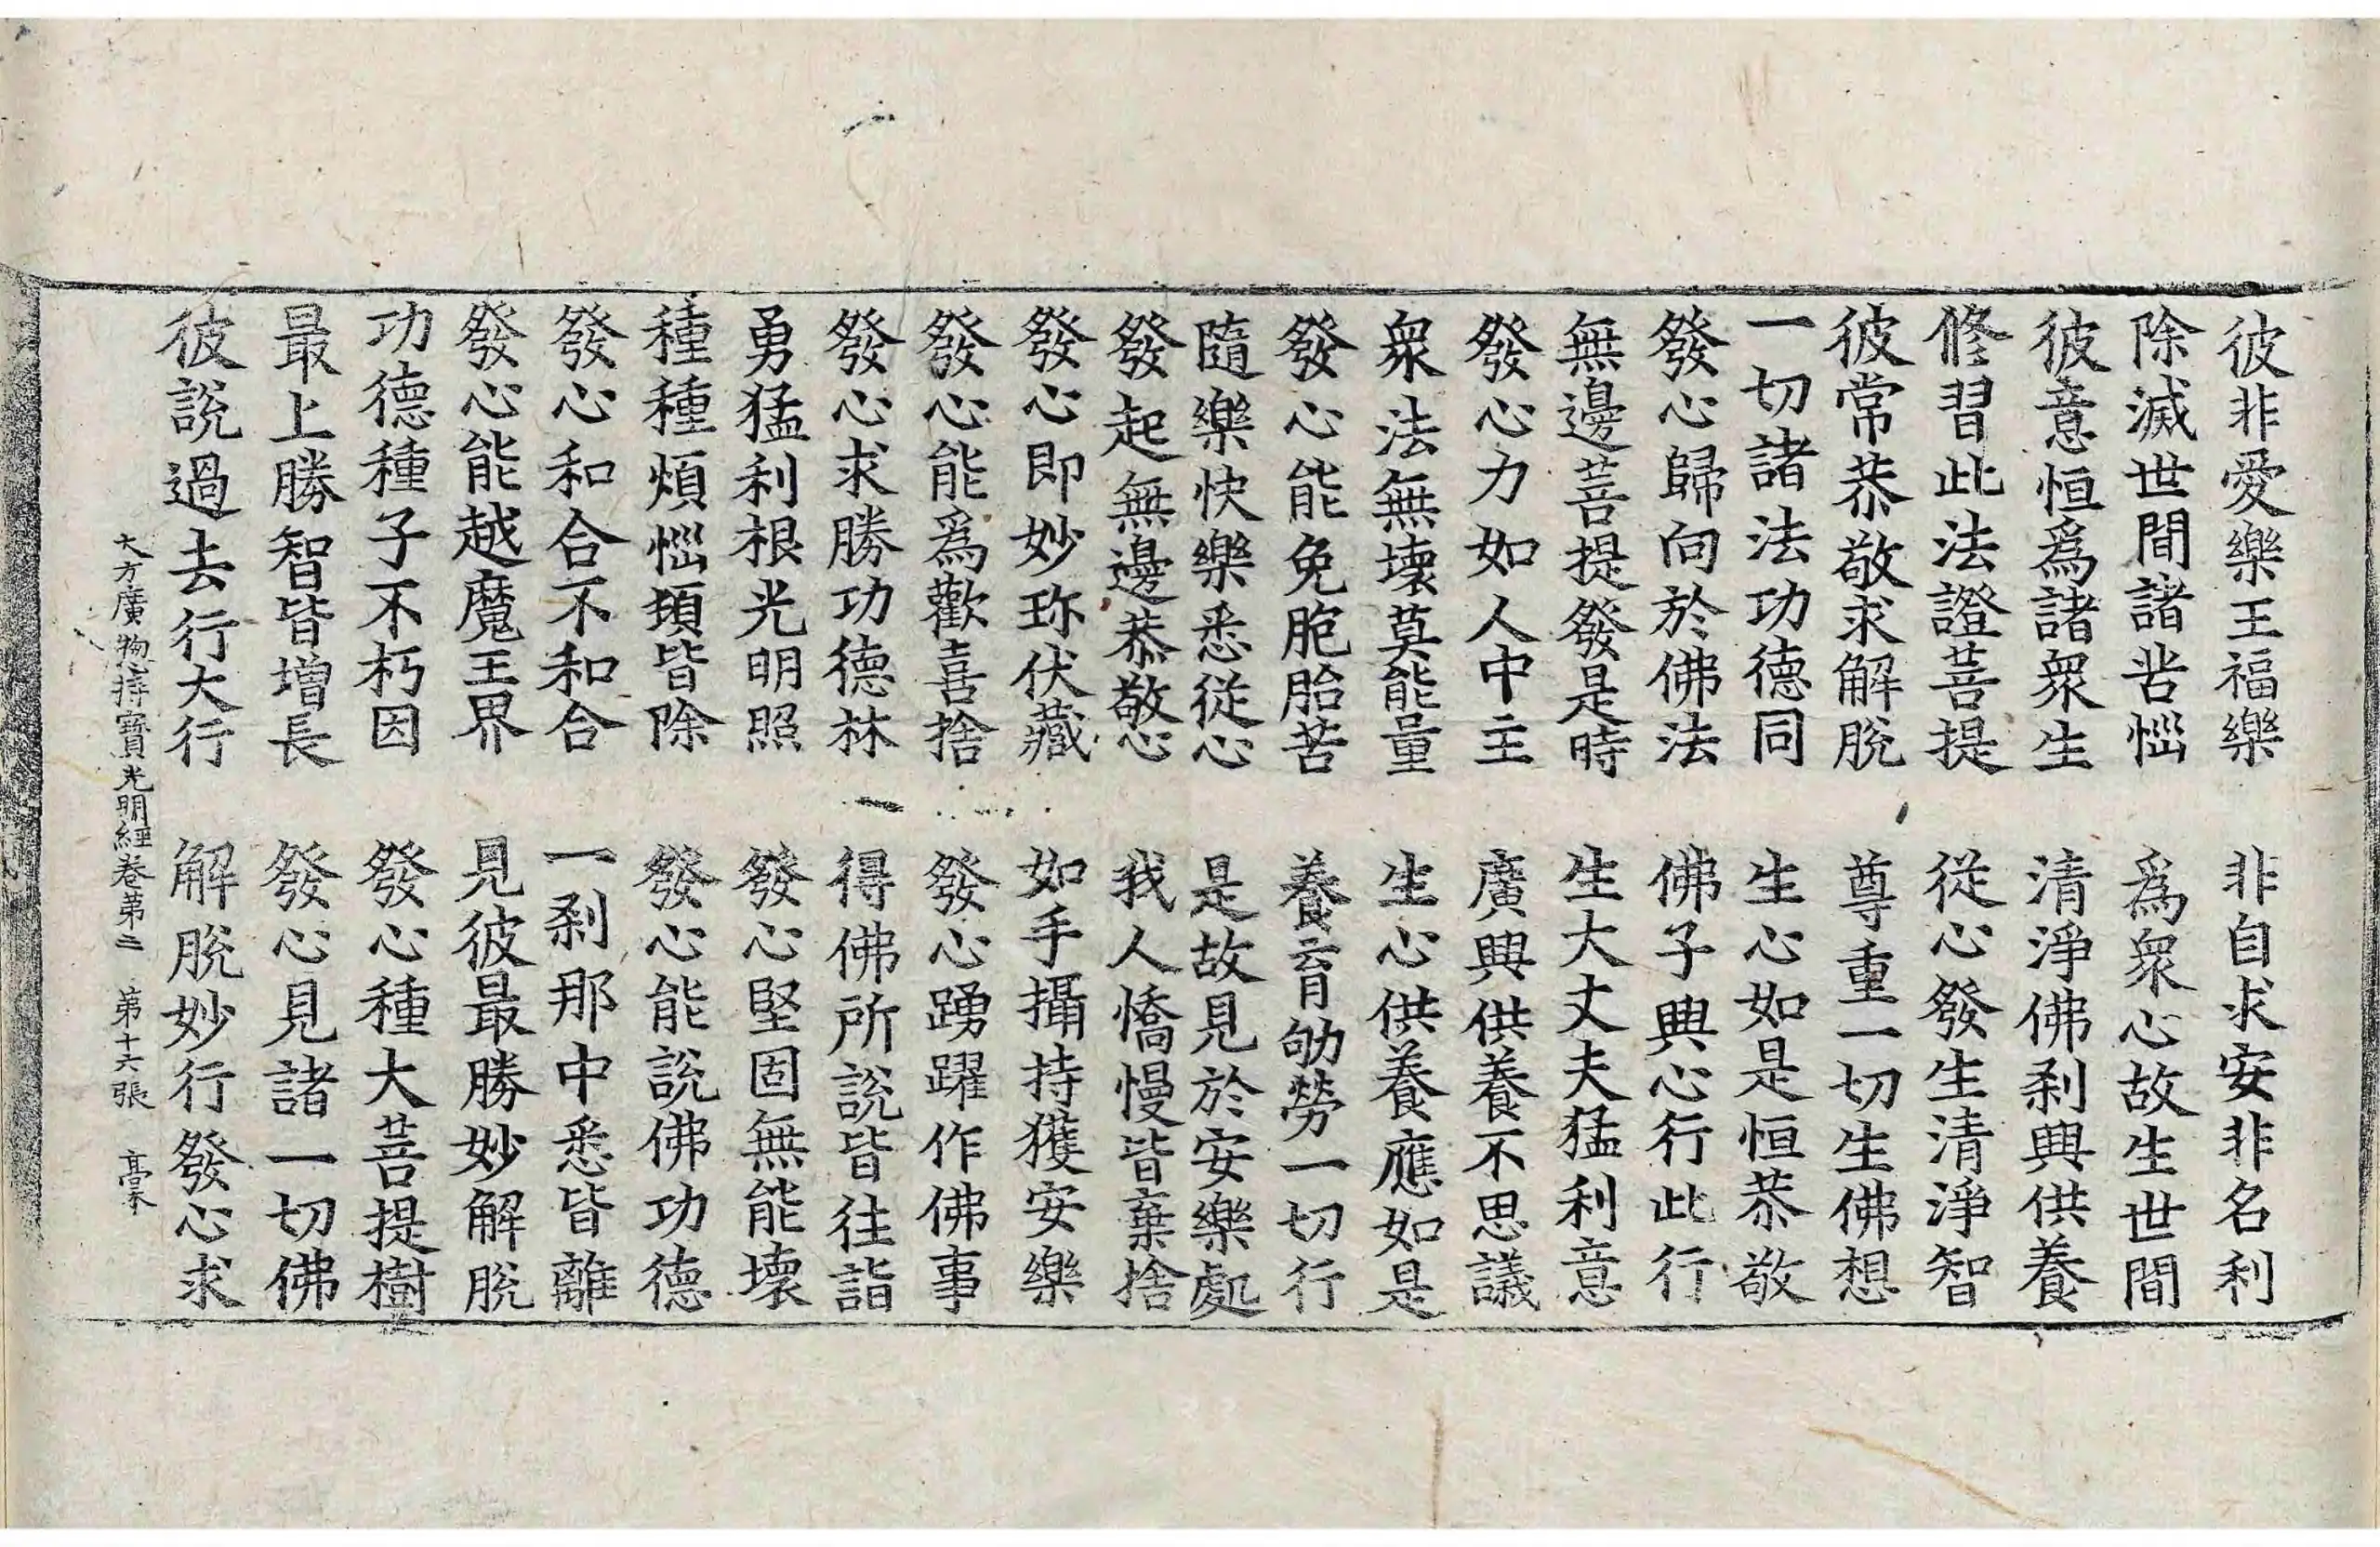 彼非愛樂王福樂　非自求安非名利
除滅世間諸苦惱　爲衆心故生世間
彼意恒爲諸衆生　清淨佛刹興供養
修習此法證菩提　從心發生清淨智
彼常恭敬求解脫　尊重一切生佛想
一切諸法功德同　生心如是恒恭敬
發心歸向於佛法　佛子興心行此行
無邊菩提發是時　生大丈夫猛利意
發心力如人中主　廣興供養不思議
衆法無壞莫能量　生心供養應如是
發心能免胞胎苦　養育劬勞一切行
隨樂快樂悉從心　是故見於安樂處
發起無邊恭敬心　我人憍慢皆棄捨
發心即妙珎伏藏　如手攝持獲安樂
發心能爲歡喜捨　發心踴躍作佛事
發心求勝功德林　得佛所說皆往詣
勇猛利根光明照　發心堅固無能壞
種種煩惱頓皆除　發心能說佛功德
發心和合不和合　一刹那中悉皆離
發心能越魔王界　見彼最勝妙解脫
功德種子不朽因　發心種大菩提樹
最上勝智皆增長　發心見諸一切佛
彼說過去行大行　解脫妙行發心求
大方廣惣持寶光明經卷第二　第十六張　豪